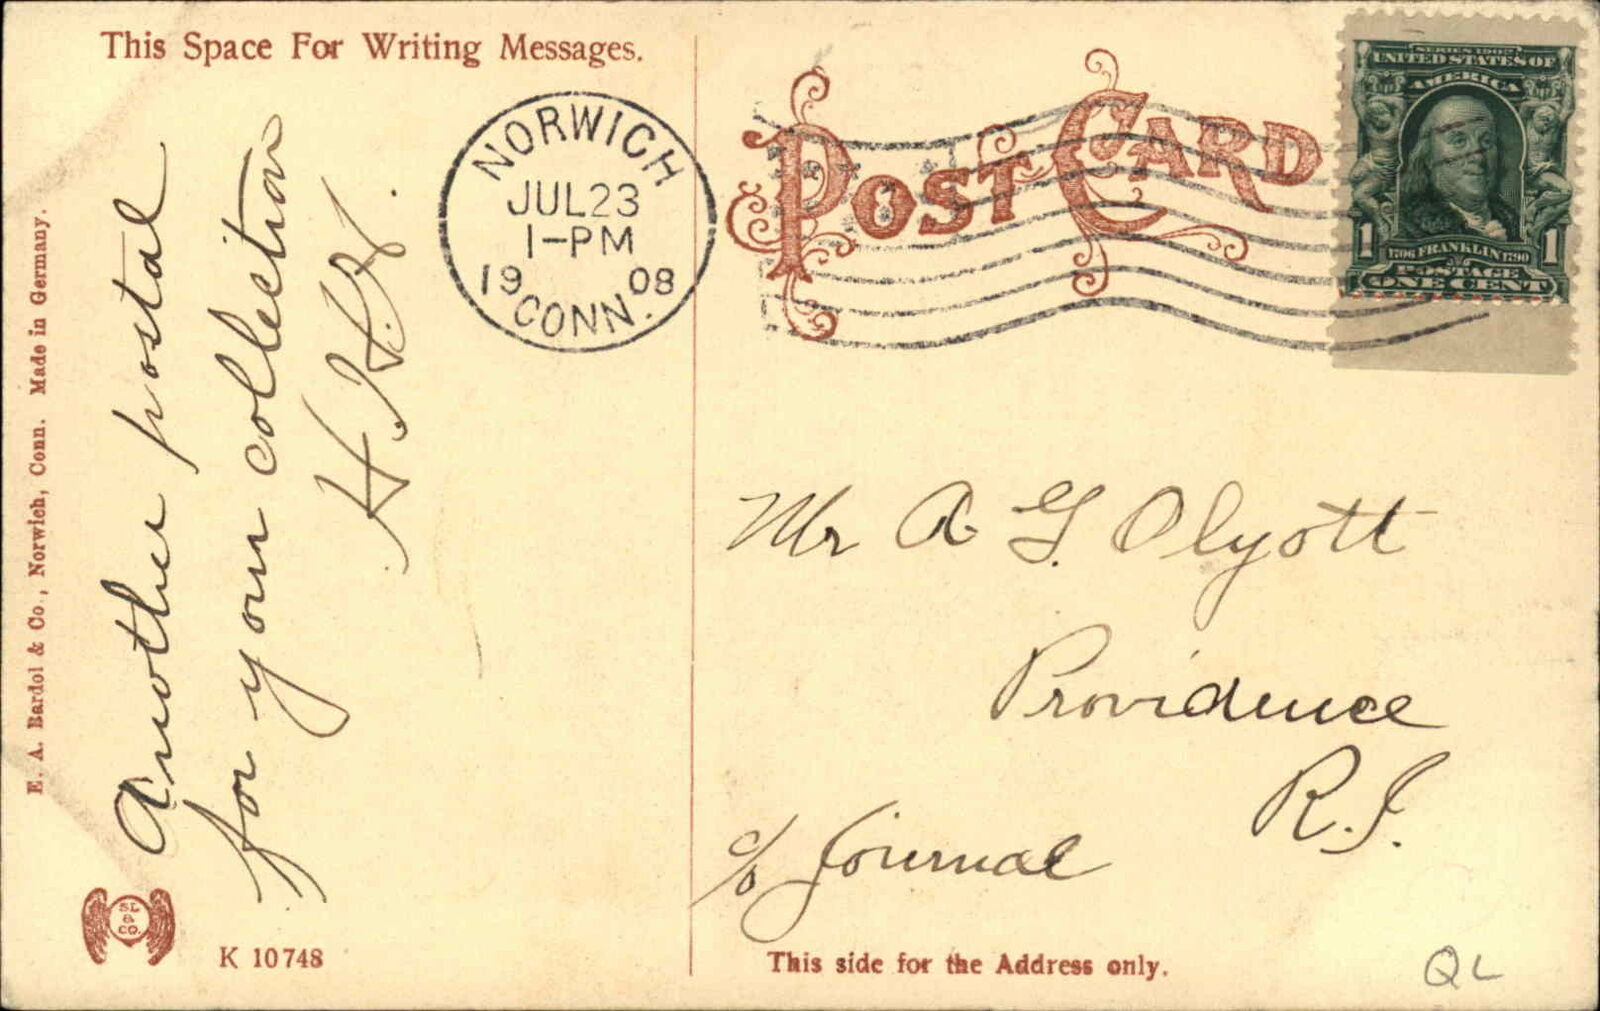 This Space For Writing Messages.
NORWICH
JUL 23
1-PM
1908
CONN.
POST CARD
SERIES 1902
UNITED STATES OF
AMERICA
1 1
1706 FRANKLIN 1790
POSTAGE
ONE CENT
E. A. Bardol & Co., Norwich, Conn. Made in Germany.
Another postal
for your collection
Mr A. G. Olyott
Providence
R.I.
c/o Journal
SL
&
CO.
K 10748
This side for the Address only.
QL